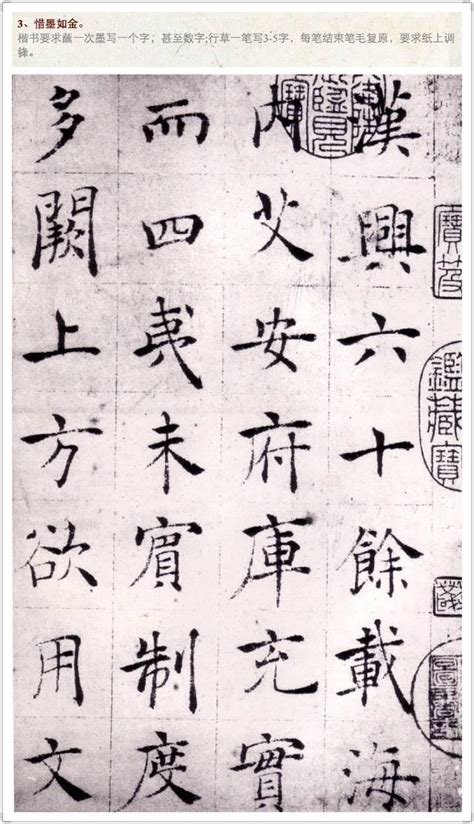 3、惜墨如金。
楷书要求蘸一次墨写一个字；甚至数字;行草一笔写3-5字，每笔结束笔毛复原，要求纸上调
锋。
漢興六十餘載海
内艾安府庫充實
而四夷未賓制度
多闕上方欲用文
寶笈
鑑藏寶